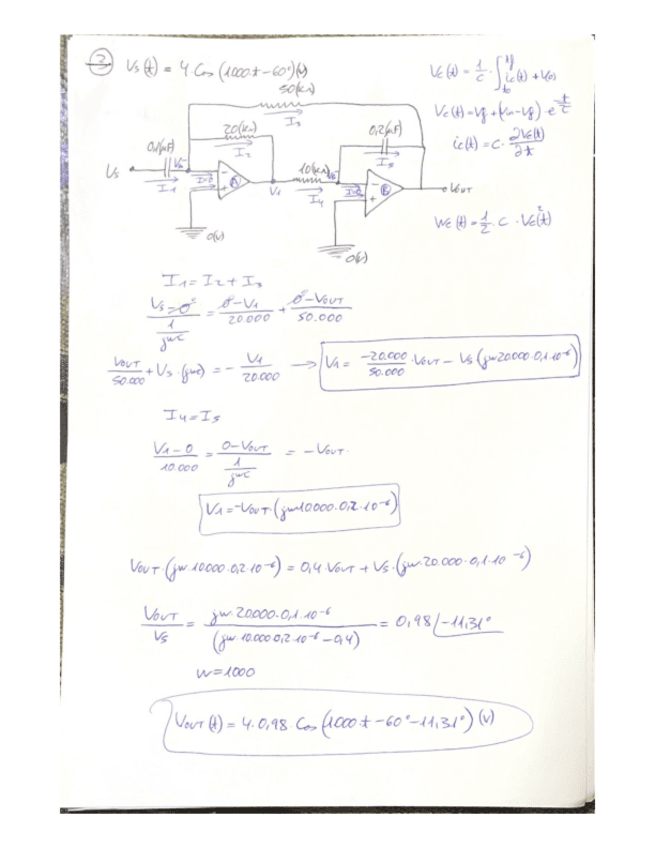 ② Vs(t) = 4·Cos(1000·t−60°)(V)
Vc(t) = 1/C · ∫ ic(t) + V(o)
Vc(t) = Vf + (Vin−Vf)·e^(t/τ)
ic(t) = C · ∂Vc(t)/∂t
Wc(t) = 1/2 · C · Vc²(t)
50(kΩ)
I3
20(kΩ)
I2
0,1(μF)
0,2(μF)
I5
Vs
I1
I=0
V1
10(kΩ)
I4
I=0
VOUT
0(V)
0(V)
I1 = I2 + I3
(Vs−0)/(1/jwC) = (0−V1)/20.000 + (0−VOUT)/50.000
VOUT/50.000 + Vs·(jwC) = − V1/20.000 → V1 = −20.000/50.000 · VOUT − Vs(jw20000·0,1·10⁻⁶)
I4 = I5
(V1−0)/10.000 = (0−VOUT)/(1/jwC) = −VOUT·
V1 = −VOUT·(jw10000·0,2·10⁻⁶)
VOUT·(jw·10000·0,2·10⁻⁶) = 0,4·VOUT + Vs·(jw·20.000·0,1·10⁻⁶)
VOUT/Vs = jw·20000·0,1·10⁻⁶/(jw·10.000·0,2·10⁻⁶−0,4) = 0,98 /−11,31°
w=1000
VOUT(t) = 4·0,98·Cos(1000·t−60°−11,31°)(V)